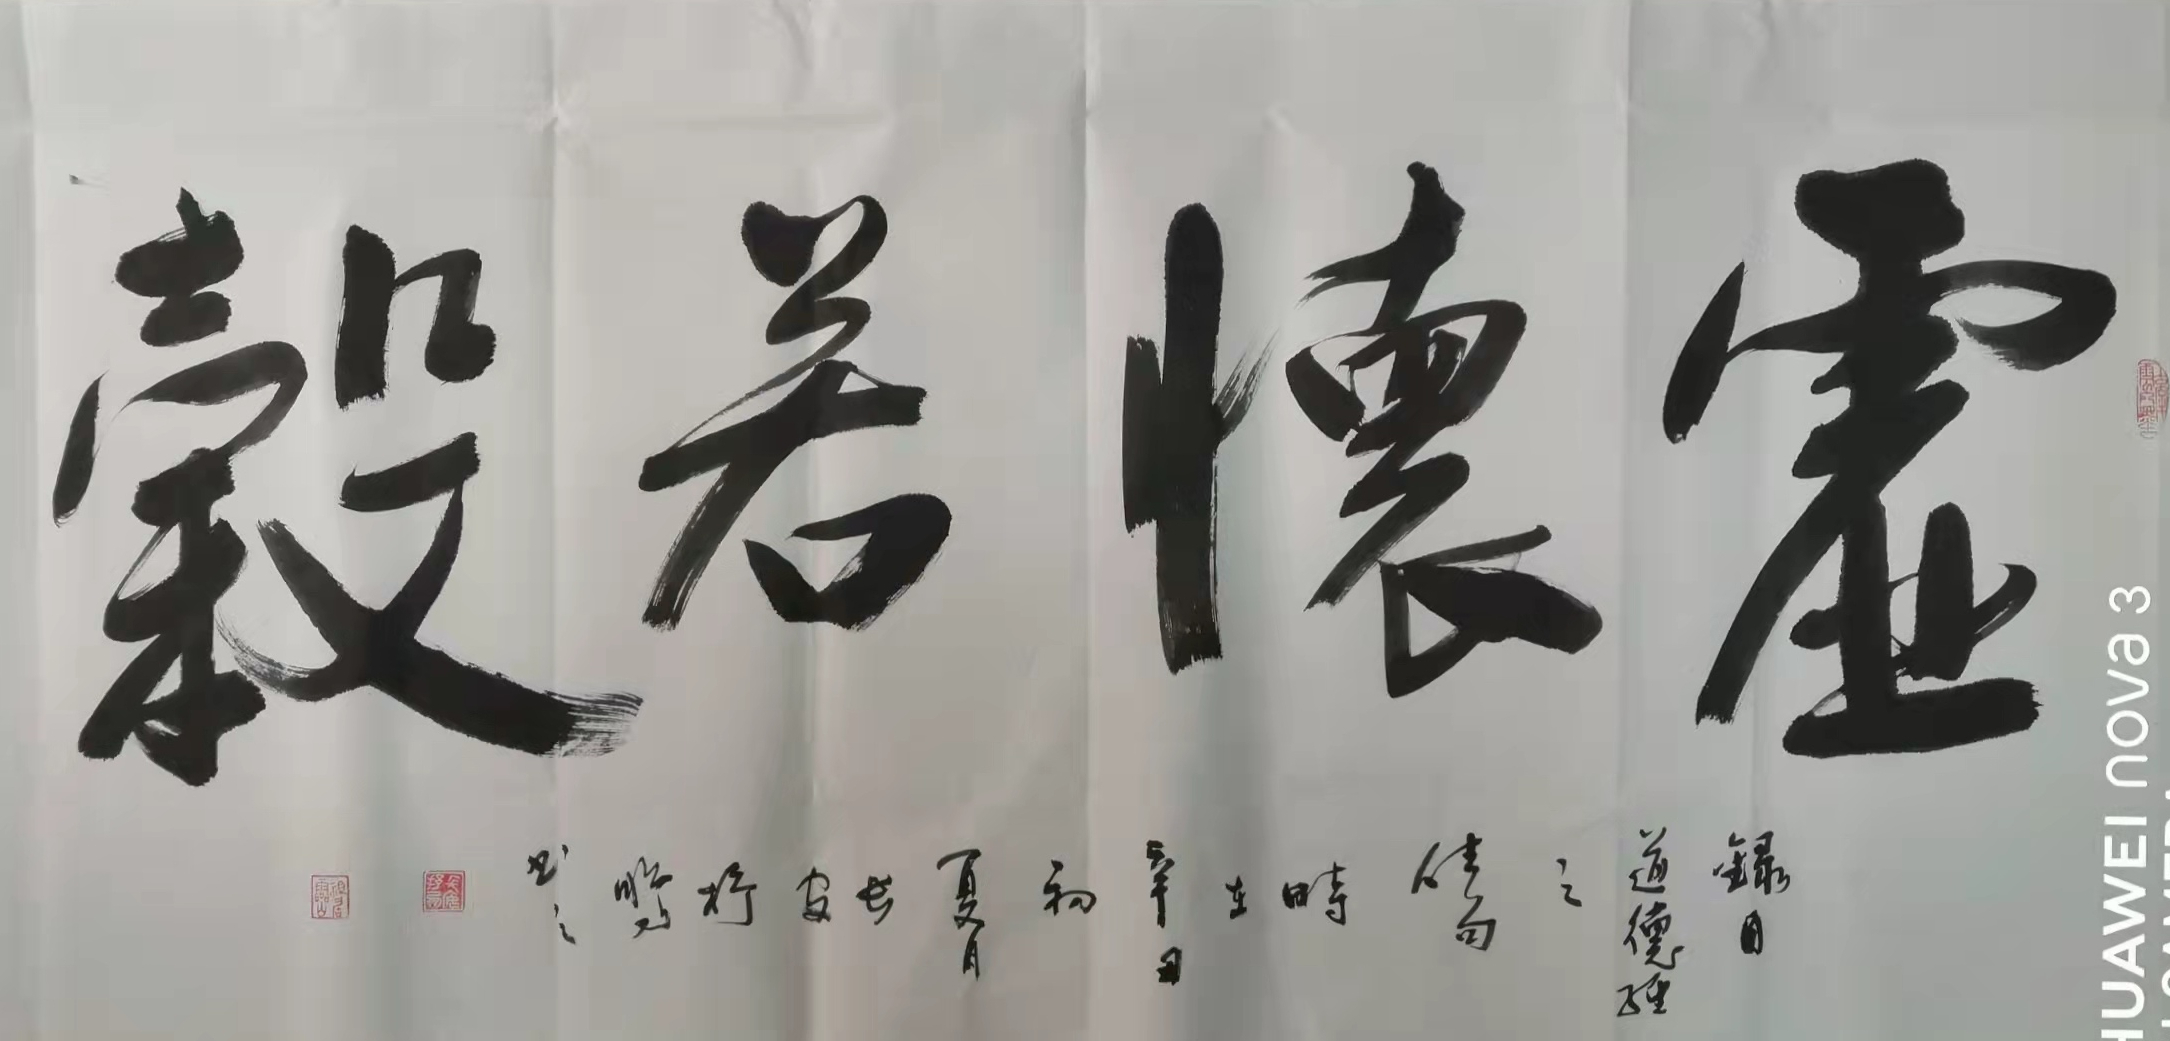 虚懷若穀
錄自
道德經
之
佳句
時
在
辛丑
初
夏月
長
安
樗
鵬
書之
HUAWEI nova 3